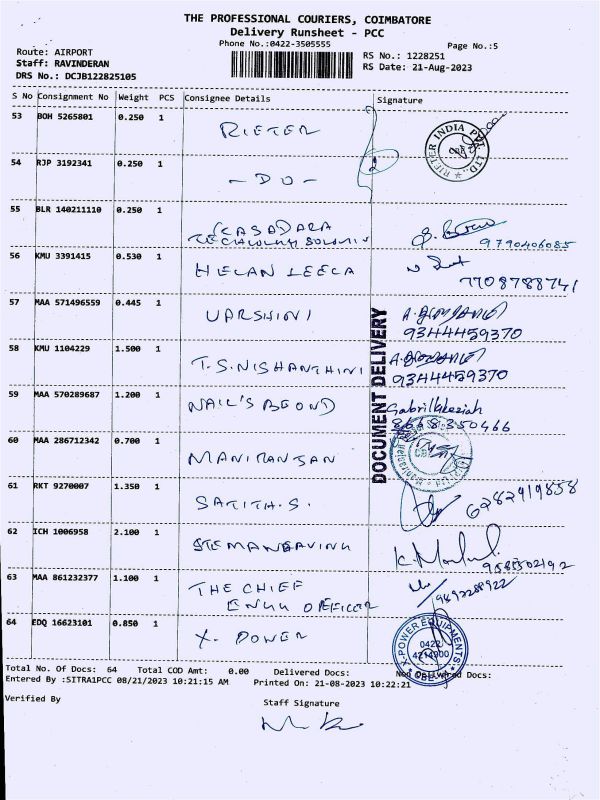 THE PROFESSIONAL COURIERS, COIMBATORE
Delivery Runsheet - PCC
Phone No.:0422-3505555
Page No.:5
Route: AIRPORT
Staff: RAVINDERAN
DRS No.: DCJB122825105
RS No.: 1228251
RS Date: 21-Aug-2023
S No Consignment No Weight PCS Consignee Details Signature
53 BOH 5265801 0.250 1 RIETER
RIETER INDIA PVT. LTD.,
54 RJP 3192341 0.250 1 - DO -
55 BLR 140211110 0.250 1
9790406085
56 KMU 3391415 0.530 1 HELAN LEELA
7708788741
57 MAA 571496559 0.445 1 VARSHINI
9344459370
58 KMU 1104229 1.500 1 T.S.NISHANTHINI
9344459370
DOCUMENT DELIVERY
59 MAA 570289687 1.200 1 NAIL'S BEOND
8668350466
60 MAA 286712342 0.700 1 MANIRANJAN
61 RKT 9270007 1.350 1 SATITH.S.
6282919858
62 ICH 1006958 2.100 1
63 MAA 861232377 1.100 1 THE CHIEF
9892288922
64 EDQ 16623101 0.850 1 X. POWER
X-POWER EQUIPMENTS
0422
4214900
CBE
Total No. Of Docs: 64 Total COD Amt: 0.00 Delivered Docs: Non Delivered Docs:
Entered By :SITRA1PCC 08/21/2023 10:21:15 AM Printed On: 21-08-2023 10:22:21
Verified By
Staff Signature